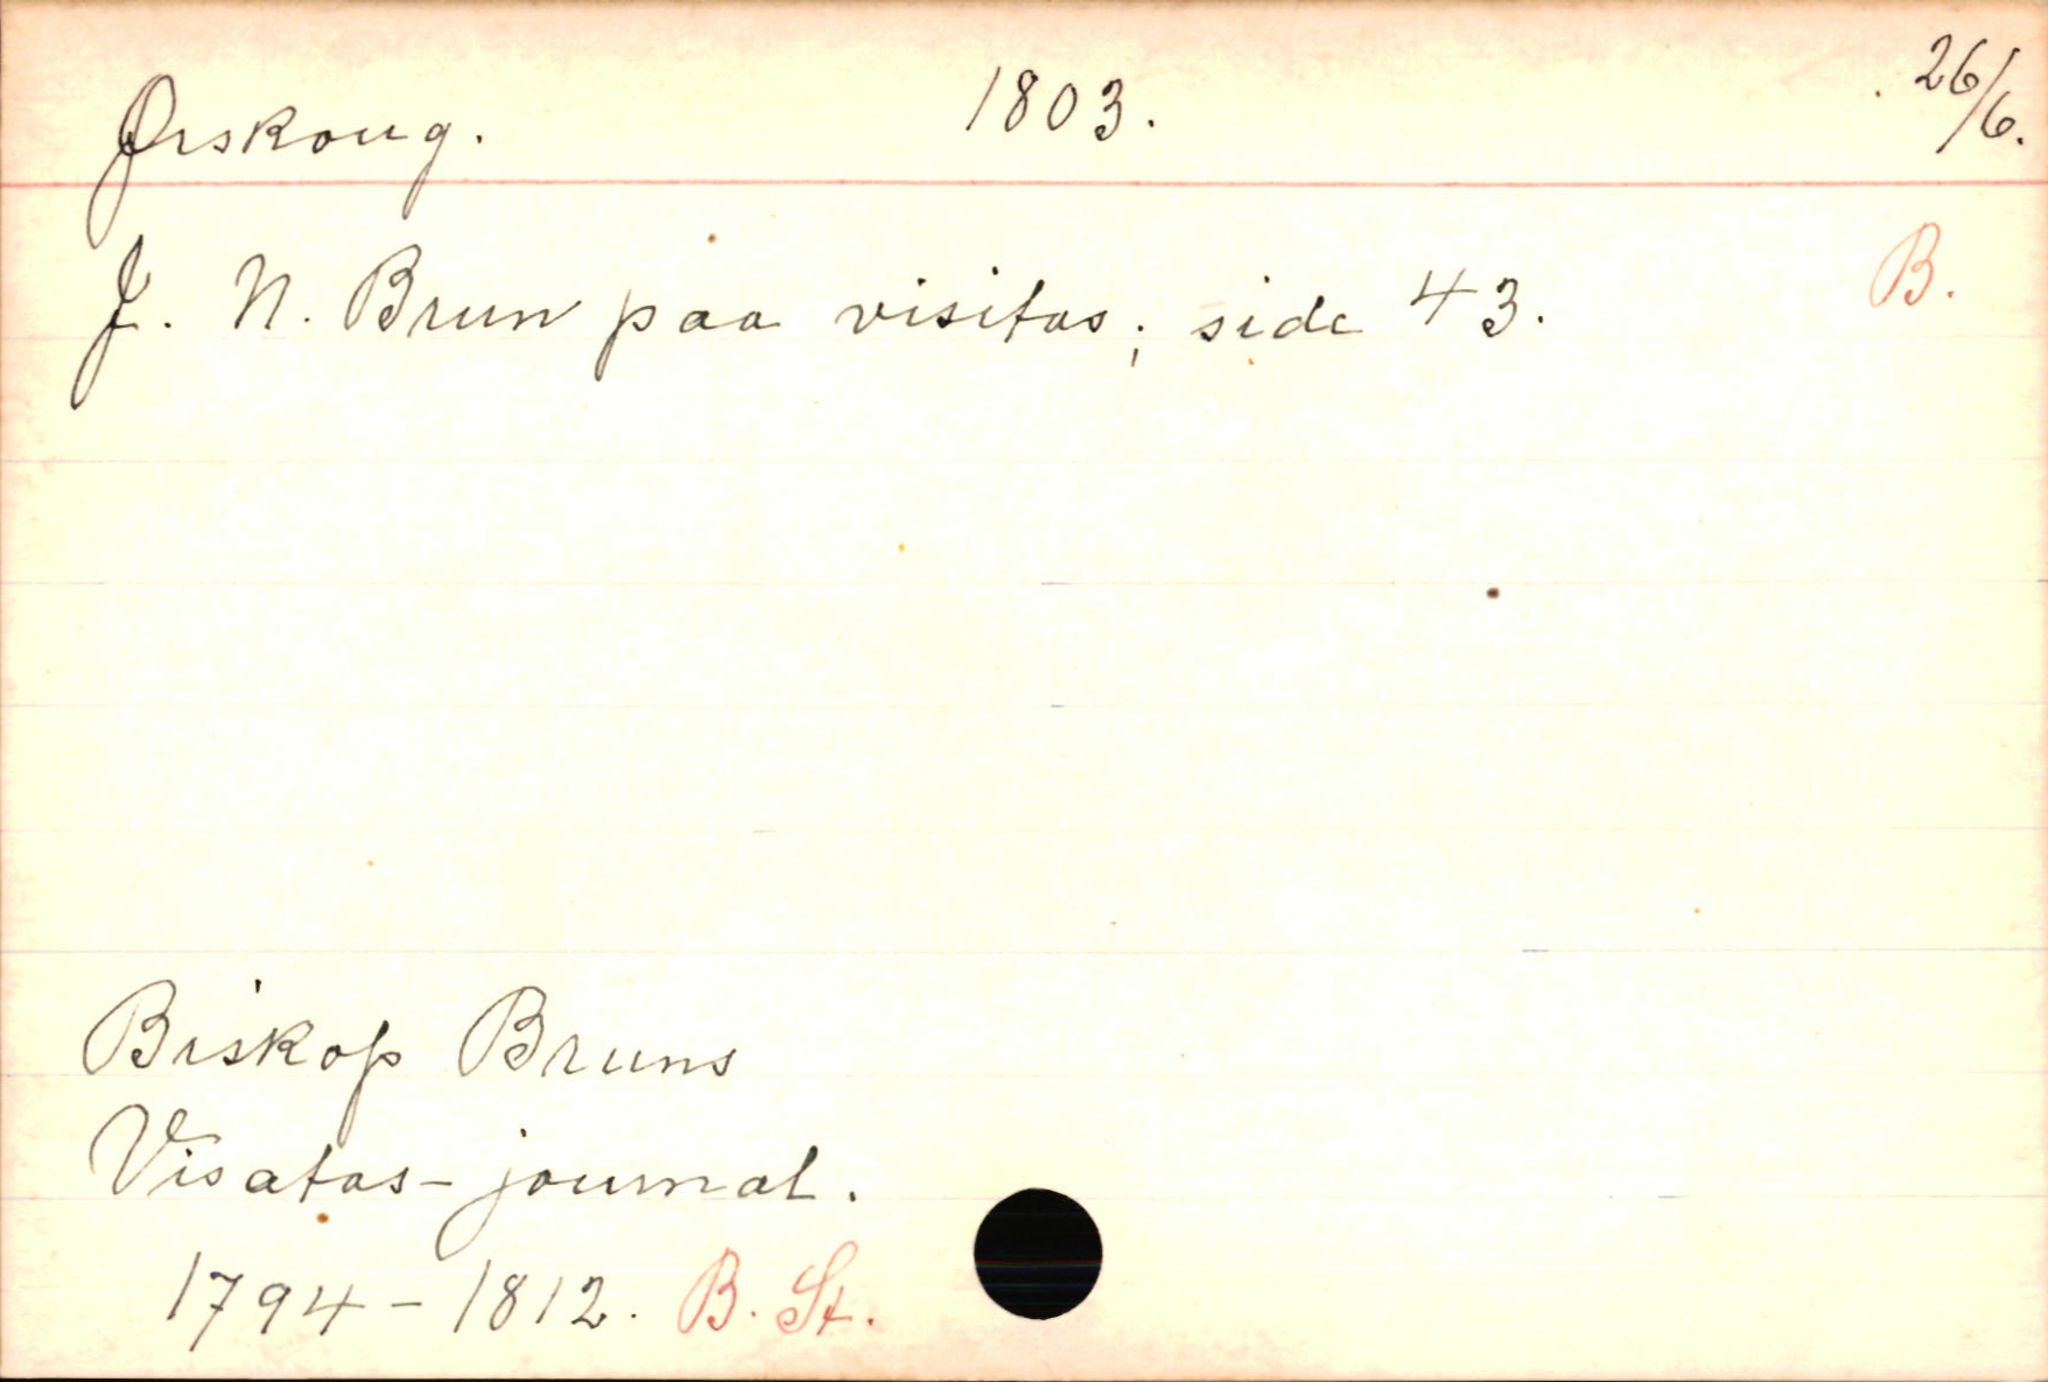 Ørskoug. 1803. 26/6.
J. N. Brun paa visitas; side 43. B.
Biskop Bruns
Visatas-journal.
1794-1812. B. St.